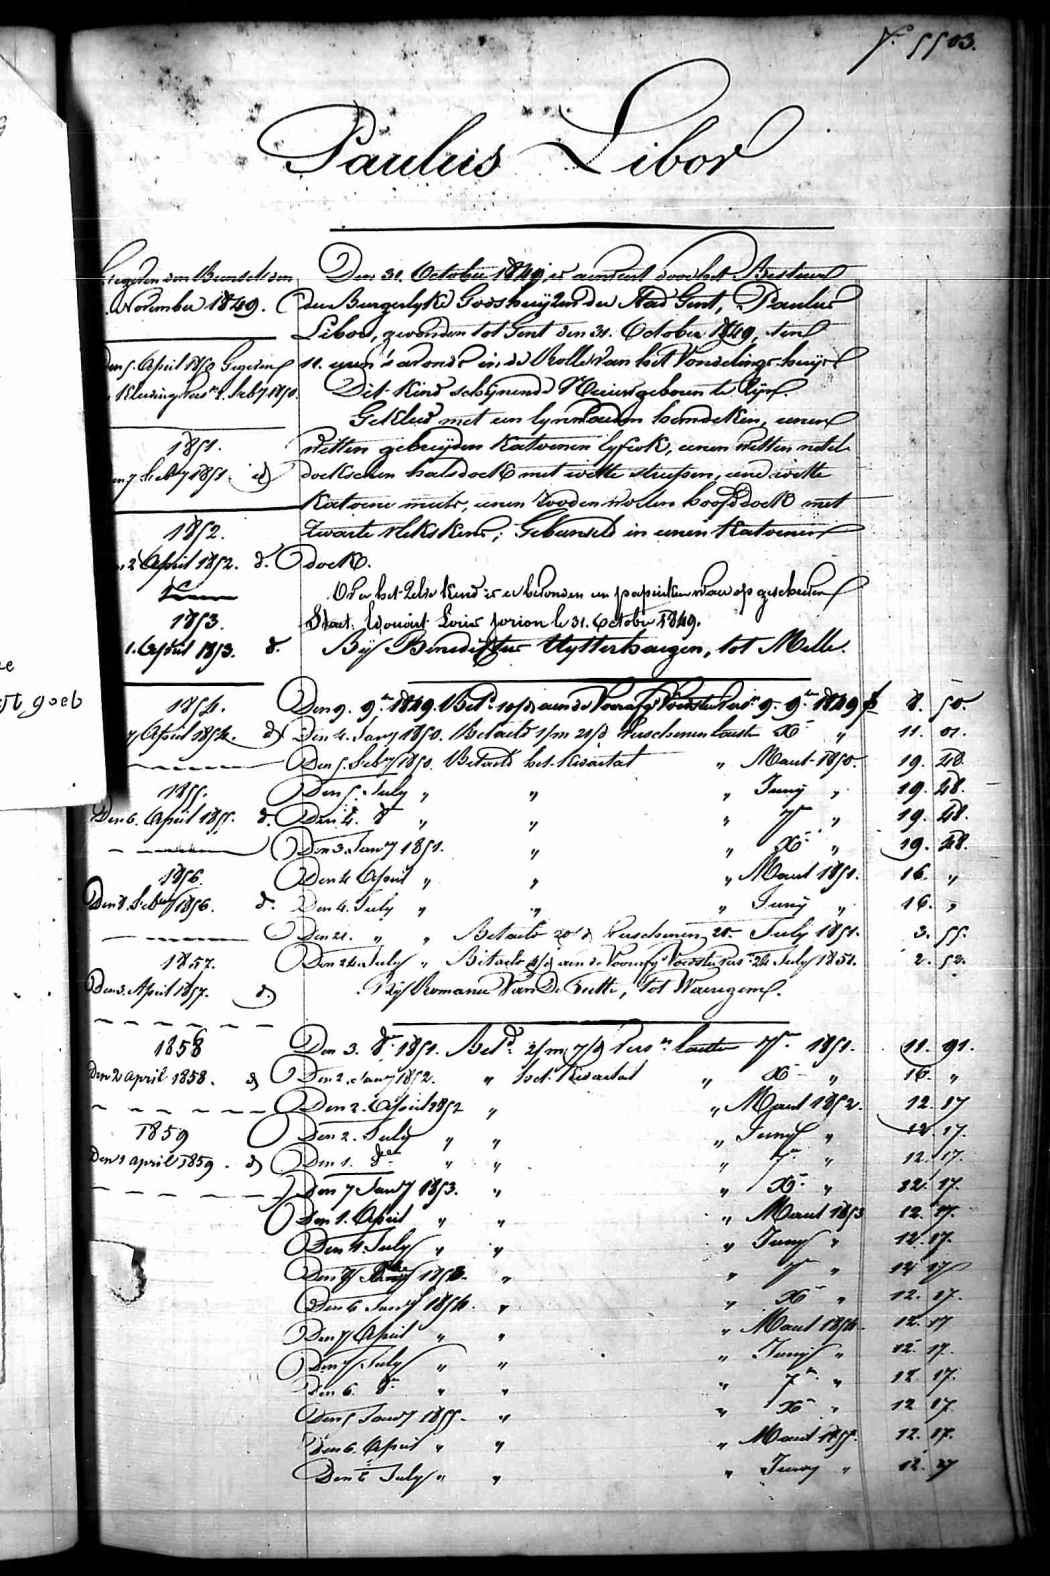 N.o 5503.
Paulus Libor
Den 31. October 1849, is aenveird door het Bestuur
der Burgerlyke Godshuyzen der Stad Gent, Paulus
Libor, gevonden tot Gent den 31. October 1849, ten
11. uren 's avonds in de Rolle van het Vondelings-huys
Dit kind schynende Nieuwgeboren te Zyn.
Gekleed met een lynwaeden hemdeken, eenen
witten katoenen lyfrok, eenen witten
halsdoek met witte, eene witte
katoene muts, eenen rooden wollen hoofddoek met
zwarte; Gebunseld in eenen katoenen
doek.
Op het zelve kind is er bevonden een papierken waer op geschreven
Staet: Edouart Louis Jorion le 31. Octobre 1849.
By Benedictus Uytterhaegen, tot Melle.
Gegeven den Bunsel den
November 1849.
Den 5. April 1850 Gegeven
Kleeding 1850.
1851.
1851. d.
1852.
2 April 1852. d.
1853.
1. April 1853. d.
1854.
7 April 1854. d.
1855.
Den 6. April 1855. d.
1856.
Den 8 1856. d.
1857.
Den 3. April 1857. d.
1858
Den 2 april 1858. d
1859
Den 1 april 1859. d
Den 9. 9.er 1849. Bet. aen de Voedster 9. 9.er 1849 f 8. 50.
Den 4. Jany 1850. Betaeld 1/m 21/d Verschenen X.er " 11. 01.
Den 5. Feby 1850. Betaeld het kwartael " Maert 1850. 19. 48.
Den 5. July " " " Juny " 19. 48.
Den 4. 8 " " " 7.er " 19. 48.
Den 3. Jany 1851. " " X.er " 19. 48.
Den 4 April " " " Maert 1851. 16. "
Den 4. July " " " Juny " 16. "
Den 21. " " Betaeld 20 d Verschenen 20 July 1851. 3. 55.
Den 24. July " Betaeld aen de Voedster 24 July 1851. 2. 52.
By Romanie Van De Vielle, tot Waereghem.
Den 3. 8.er 1851. Bet.d 2/m 7/d 7.er 1851. 11. 91.
Den 2. Jany 1852. " het kwartael " X.er " 16. "
Den 2. April 1852 " " Maert 1852. 12 17
Den 2. July " " " Juny " 12. 17.
Den 1. 8.er " " " 7.er " 12. 17.
Den 7 Jany 1853. " " X.er " 12. 17
Den 1. April " " " Maert 1853 12. 17.
Den 4. July " " " Juny " 12. 17.
Den 1853. " " 7 " 12 17
Den 6 Jany 1854. " " X.er " 12. 17.
Den 7 April " " " Maert 1854. 12. 17
Den 7 July " " " Juny " 12. 17.
Den 6. 8.er " " " 7.er " 12 17.
Den 5 Jany 1855. " " X.er " 12 17.
Den 6. April " " " Maert 1855. 12. 17.
Den 6 July " " " Juny " 12. 17